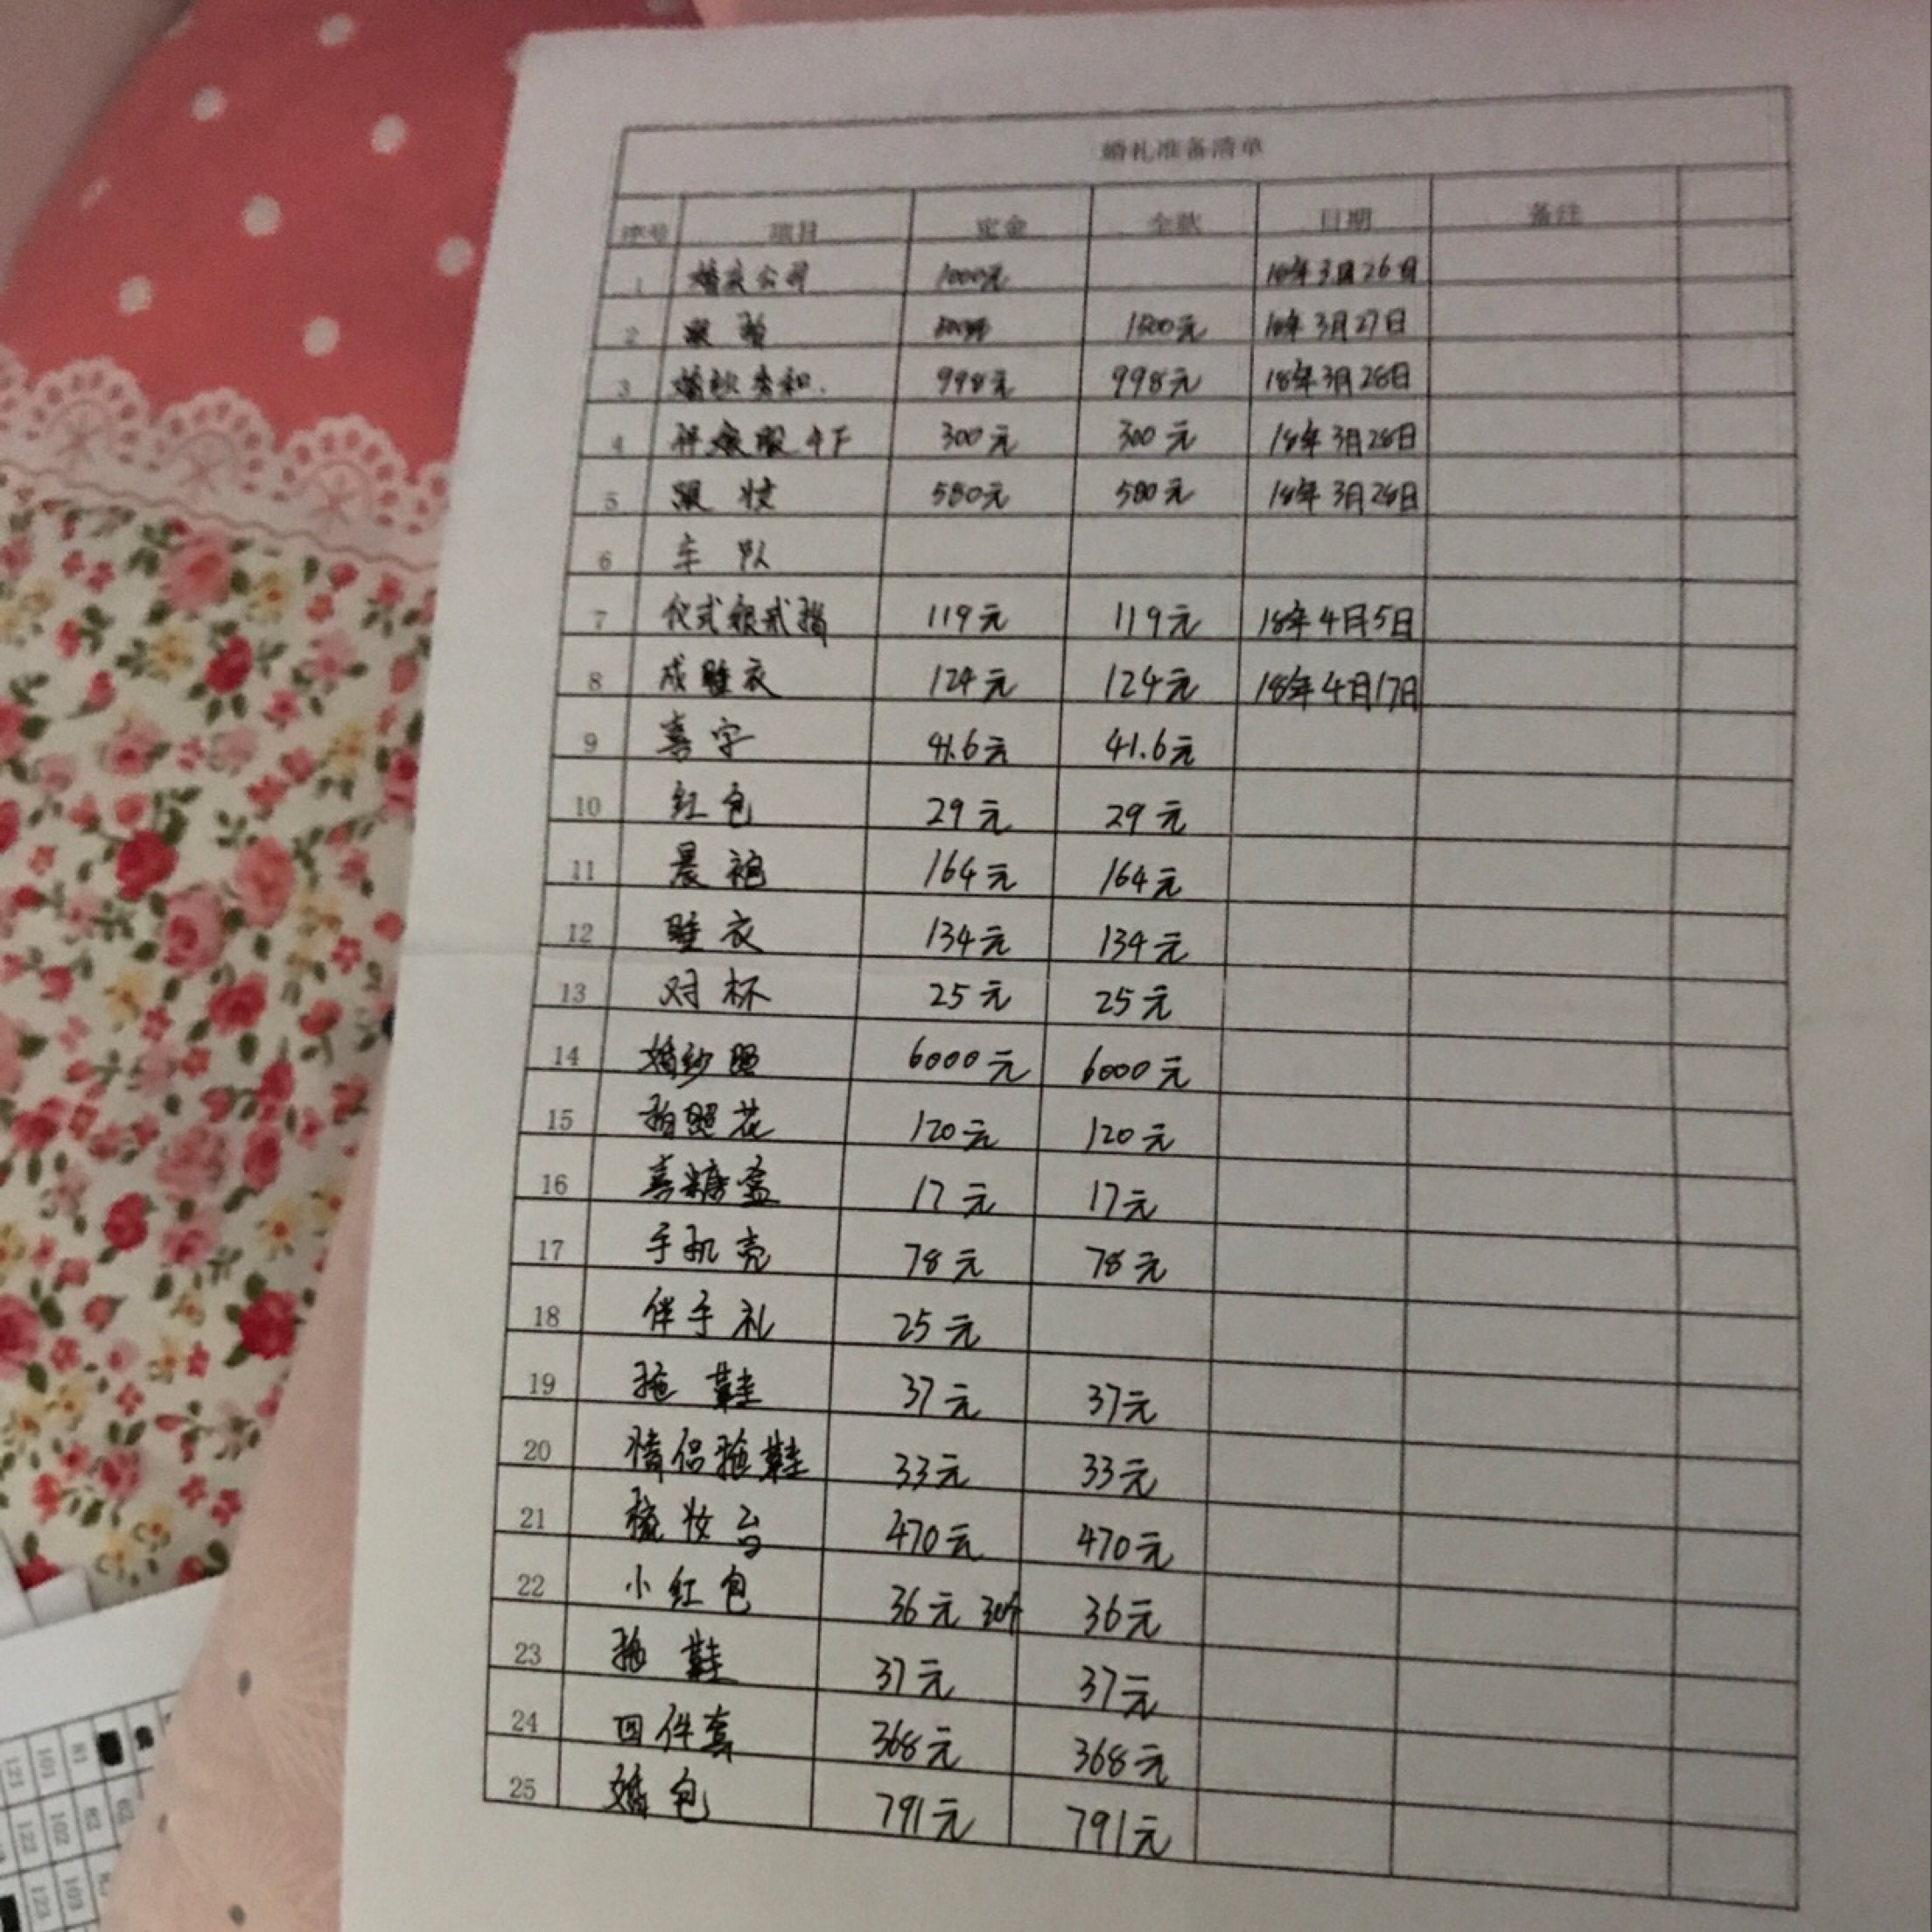 婚礼准备清单
序号 项目 定金 全款 日期 备注
1 婚庆公司 1000元 18年3月26日
2 跟拍 1500元 18年3月27日
3 婚纱秀和. 998元 998元 18年3月28日
4 伴娘服4件 300元 300元 18年3月28日
5 跟妆 580元 580元 18年3月28日
6 车队
7 仪式银戒指 119元 119元 18年4月5日
8 成睡衣 124元 124元 18年4月17日
9 喜字 41.6元 41.6元
10 红包 29元 29元
11 晨袍 164元 164元
12 睡衣 134元 134元
13 对杯 25元 25元
14 婚纱照 6000元 6000元
15 拍照花 120元 120元
16 喜糖盒 17元 17元
17 手机壳 78元 78元
18 伴手礼 25元
19 拖鞋 37元 37元
20 情侣拖鞋 33元 33元
21 梳妆台 470元 470元
22 小红包 36元 30个 36元
23 拖鞋 37元 37元
24 四件套 368元 368元
25 婚包 791元 791元
81 101 121
82 102 122
103 123